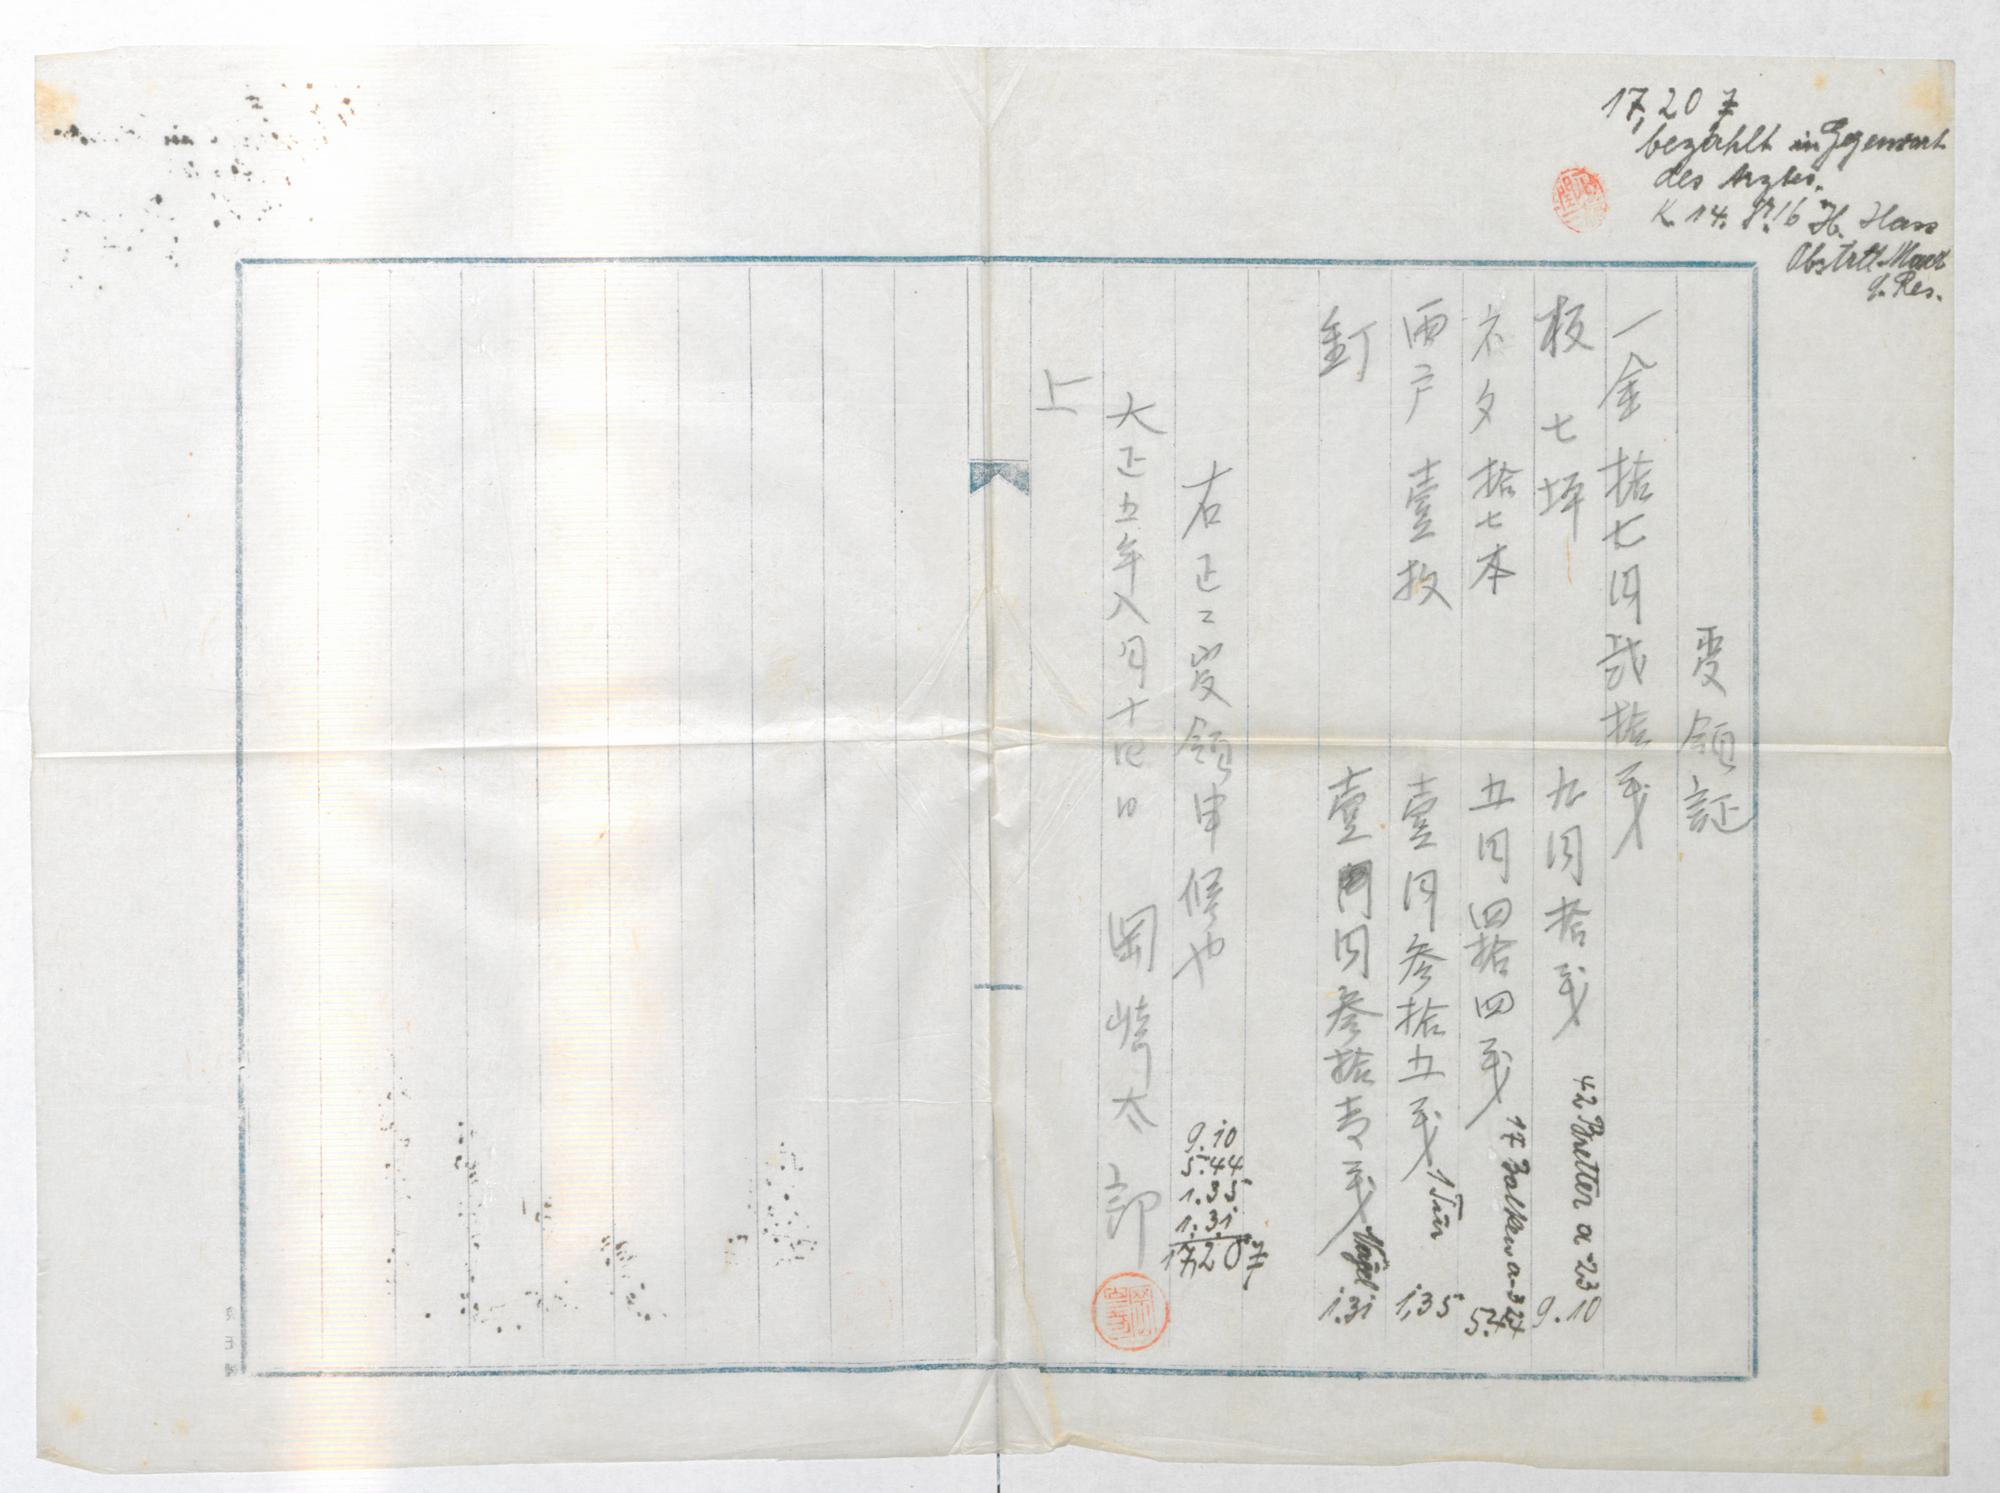 17,20 ¥
bezahlt in Gegenwart
des Arztes.
K. 14. 8. 16 H. Hass
d. Res.
受領証
一金拾七円弐拾戋
板 七坪 九円拾戋
42 Bretter a -23
9.10
ネタ拾七本 五円四拾四戋
17 Balken a -32
5.44
雨戸 壹枚 壹円参拾五戋
1 Tür
1,35
釘 壹円参拾壹戋
Nägel
1.31
右正ニ受領申候也
9.10
5.44
1.35
1.31
17,20 ¥
大正五年八月十四日 岡崎太郎
上